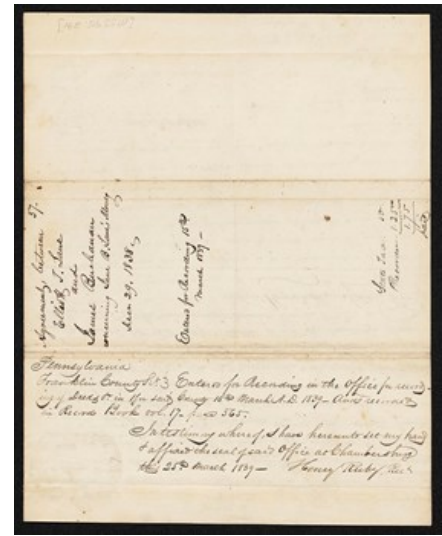 Agreement between
Elliott T. Lane
and
James Buchanan
concerning Jane B. Lane's Money
Dec 29, 1838
Entered for Recording 16th
March 1839 –
State Tax 50
Recorder 1.25
1.75
Paid
Pennsylvania
Franklin County Sct. Entered for Recording in the Office for record-
ing of Deeds &c. in & for said County 16th March A.D. 1839 – And recorded
in Record Book vol. 17 – page 565.
In testimony whereof, I have hereunto set my hand
& affixed the seal of said Office at Chambersburg
this 25th March 1839 – Henry Ruby, Recr